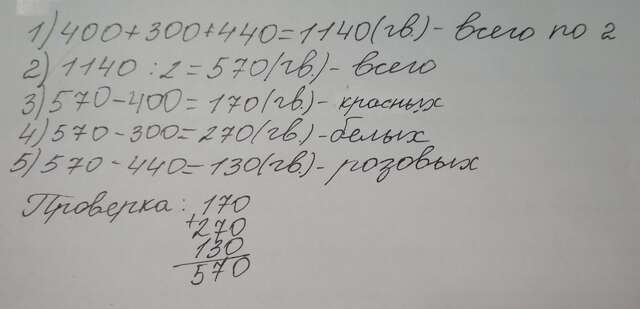 1) 400+300+440=1140(гв.)- всего по 2
2) 1140 : 2 = 570(гв.)- всего
3) 570-400=170(гв.)- красных
4) 570-300=270(гв.)-белых
5) 570-440=130(гв.)- розовых
Проверка: 170
+270
130
570